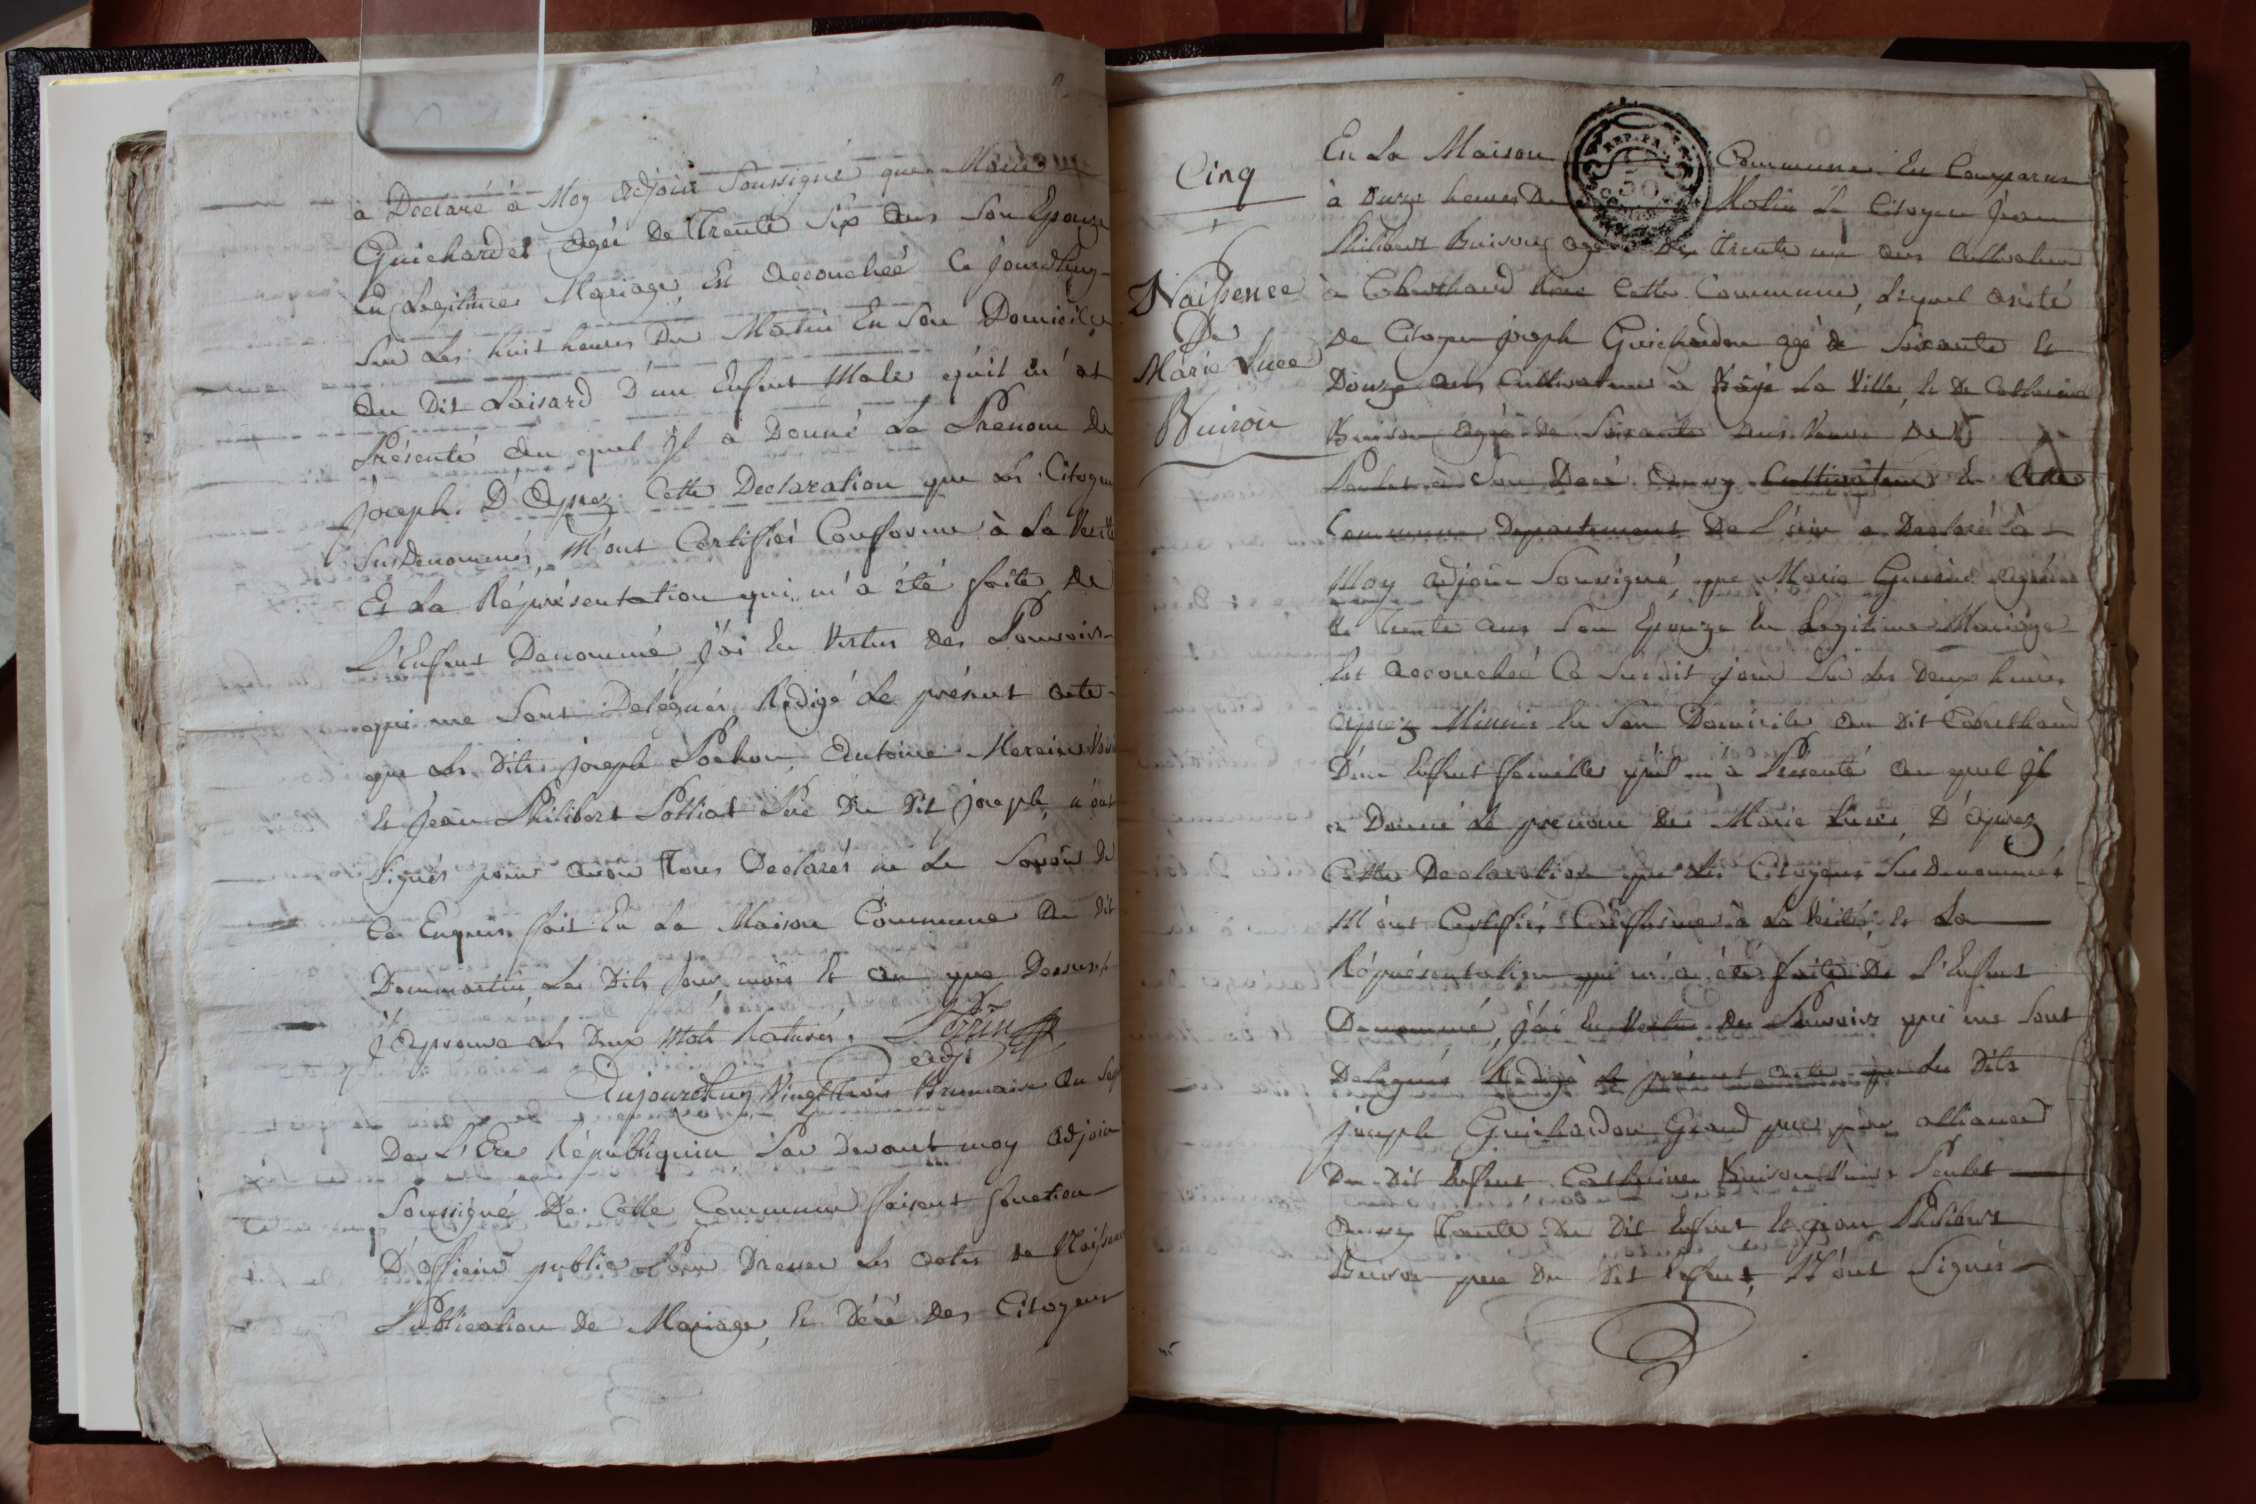 à Declaré à Moy adjoin Soussigné que Marianne
Guichardet agée De Trente Six ans Son Epouze
En Legitime Mariage Est accouchée Ce jourd'huy
Sur Les huit heures Du Matin En Son Domicile
au Dit Loisard D'un Enfant Male qu'il m'at
Présenté au quel Jl a Donné Le Prenom De
joseph. D'Aprez Cette Declaration que Les Citoyens
SusDenommés M'ont Certiffiés Conforme à La Verité
Et La Réprésentation qui m'a été faite De
L'Enfant Denommé j'ai En Vertus Des Pouvoirs
qui me Sont Délégués Redigé Le présent acte
que Les Dits joseph Pochon, Antoine
Et Jean Philibert Polliat Pére Du Dit joseph n'ont
Signés pour avoir Tous Declarés ne Le Savoir De
Ce Enquis fait En La Maison Commune Du Dit
Dommartin Les Dits jour mois Et an que Dessus
j'approuve Les Deux Mots raturés. Perrin
adjt
Aujourdhuy Vingt trois Brumaire an Sept
De L'Ere Républiquin Par Devant moy adjoin
Soussigné De Cette Commune faisant fonction
D'officier public Pour Dresser Les actes De Naissance
Publication de Mariage, Et Décé Des Citoyens
Cinq
Naissence
De
Marie Luce
Buiron
REP. FRA.
En La Maison Commune En Comparus
à onze heures Du Matin Le Citoyen Jean
Philibert Buiron agé De trente un ans Cultivateur
à Cette Commune, Lequel assisté
De Citoyen joseph Guichardon agé de Soixante Et
Douze ans Cultivateur à Bâgé La Ville, Et De Catherine
Buiron agée de Soixante ans Veuve De
Poulet à Son Decé Cultivateur En Cette
Commune Departement De L'ain a Declaré à
Moy adjoin Soussigné, que Marie agée
de trente ans Son Epouze En Legitime Mariage
Est accouchée Ce Susdit jour Sur Les Deux heures
aprez Minuis En Son Domicile au Dit
D'un Enfant femelle qu'il m'a Présenté au quel Jl
a Donné Le prenom De Marie Luce, D'aprez
Cette Declaration que Les Citoyens Sus Denommés
M'ont Certiffiés Conforme à La Vérité, Et La
Réprésentation qui m'a été faite De L'Enfant
Denommé, j'ai En Vertu Des Pouvoirs qui me Sont
Delegués Redigé Le présent acte que Les Dits
joseph Guichardon Grand pere par alliance
Du Dit Enfant Catherine Buiron Veuve Poulet
Tante Du Dit Enfant Et jean Philibert
Buiron pere Du Dit Enfant, N'ont Signés